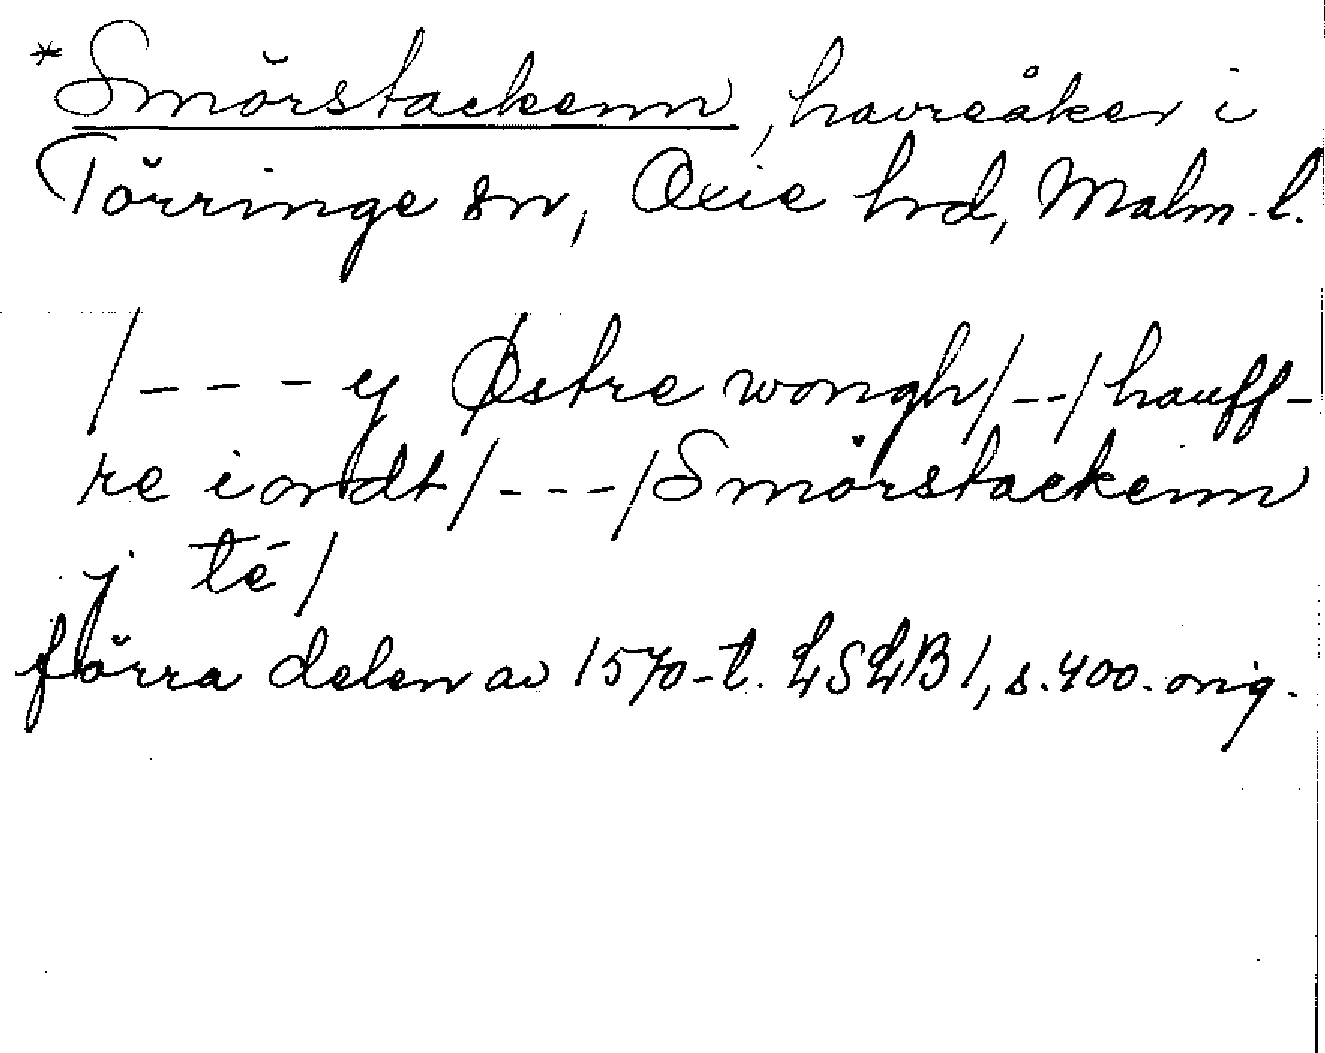 *Smörstackenn, havreåker i
Törringe sn, Oxie hrd, Malm. l.
/--- y Østre wongh/--/hauff-
re iordt/---/Smörstackenn
j té/
förra delen av 1570-t. LSLB 1, s. 400. orig.